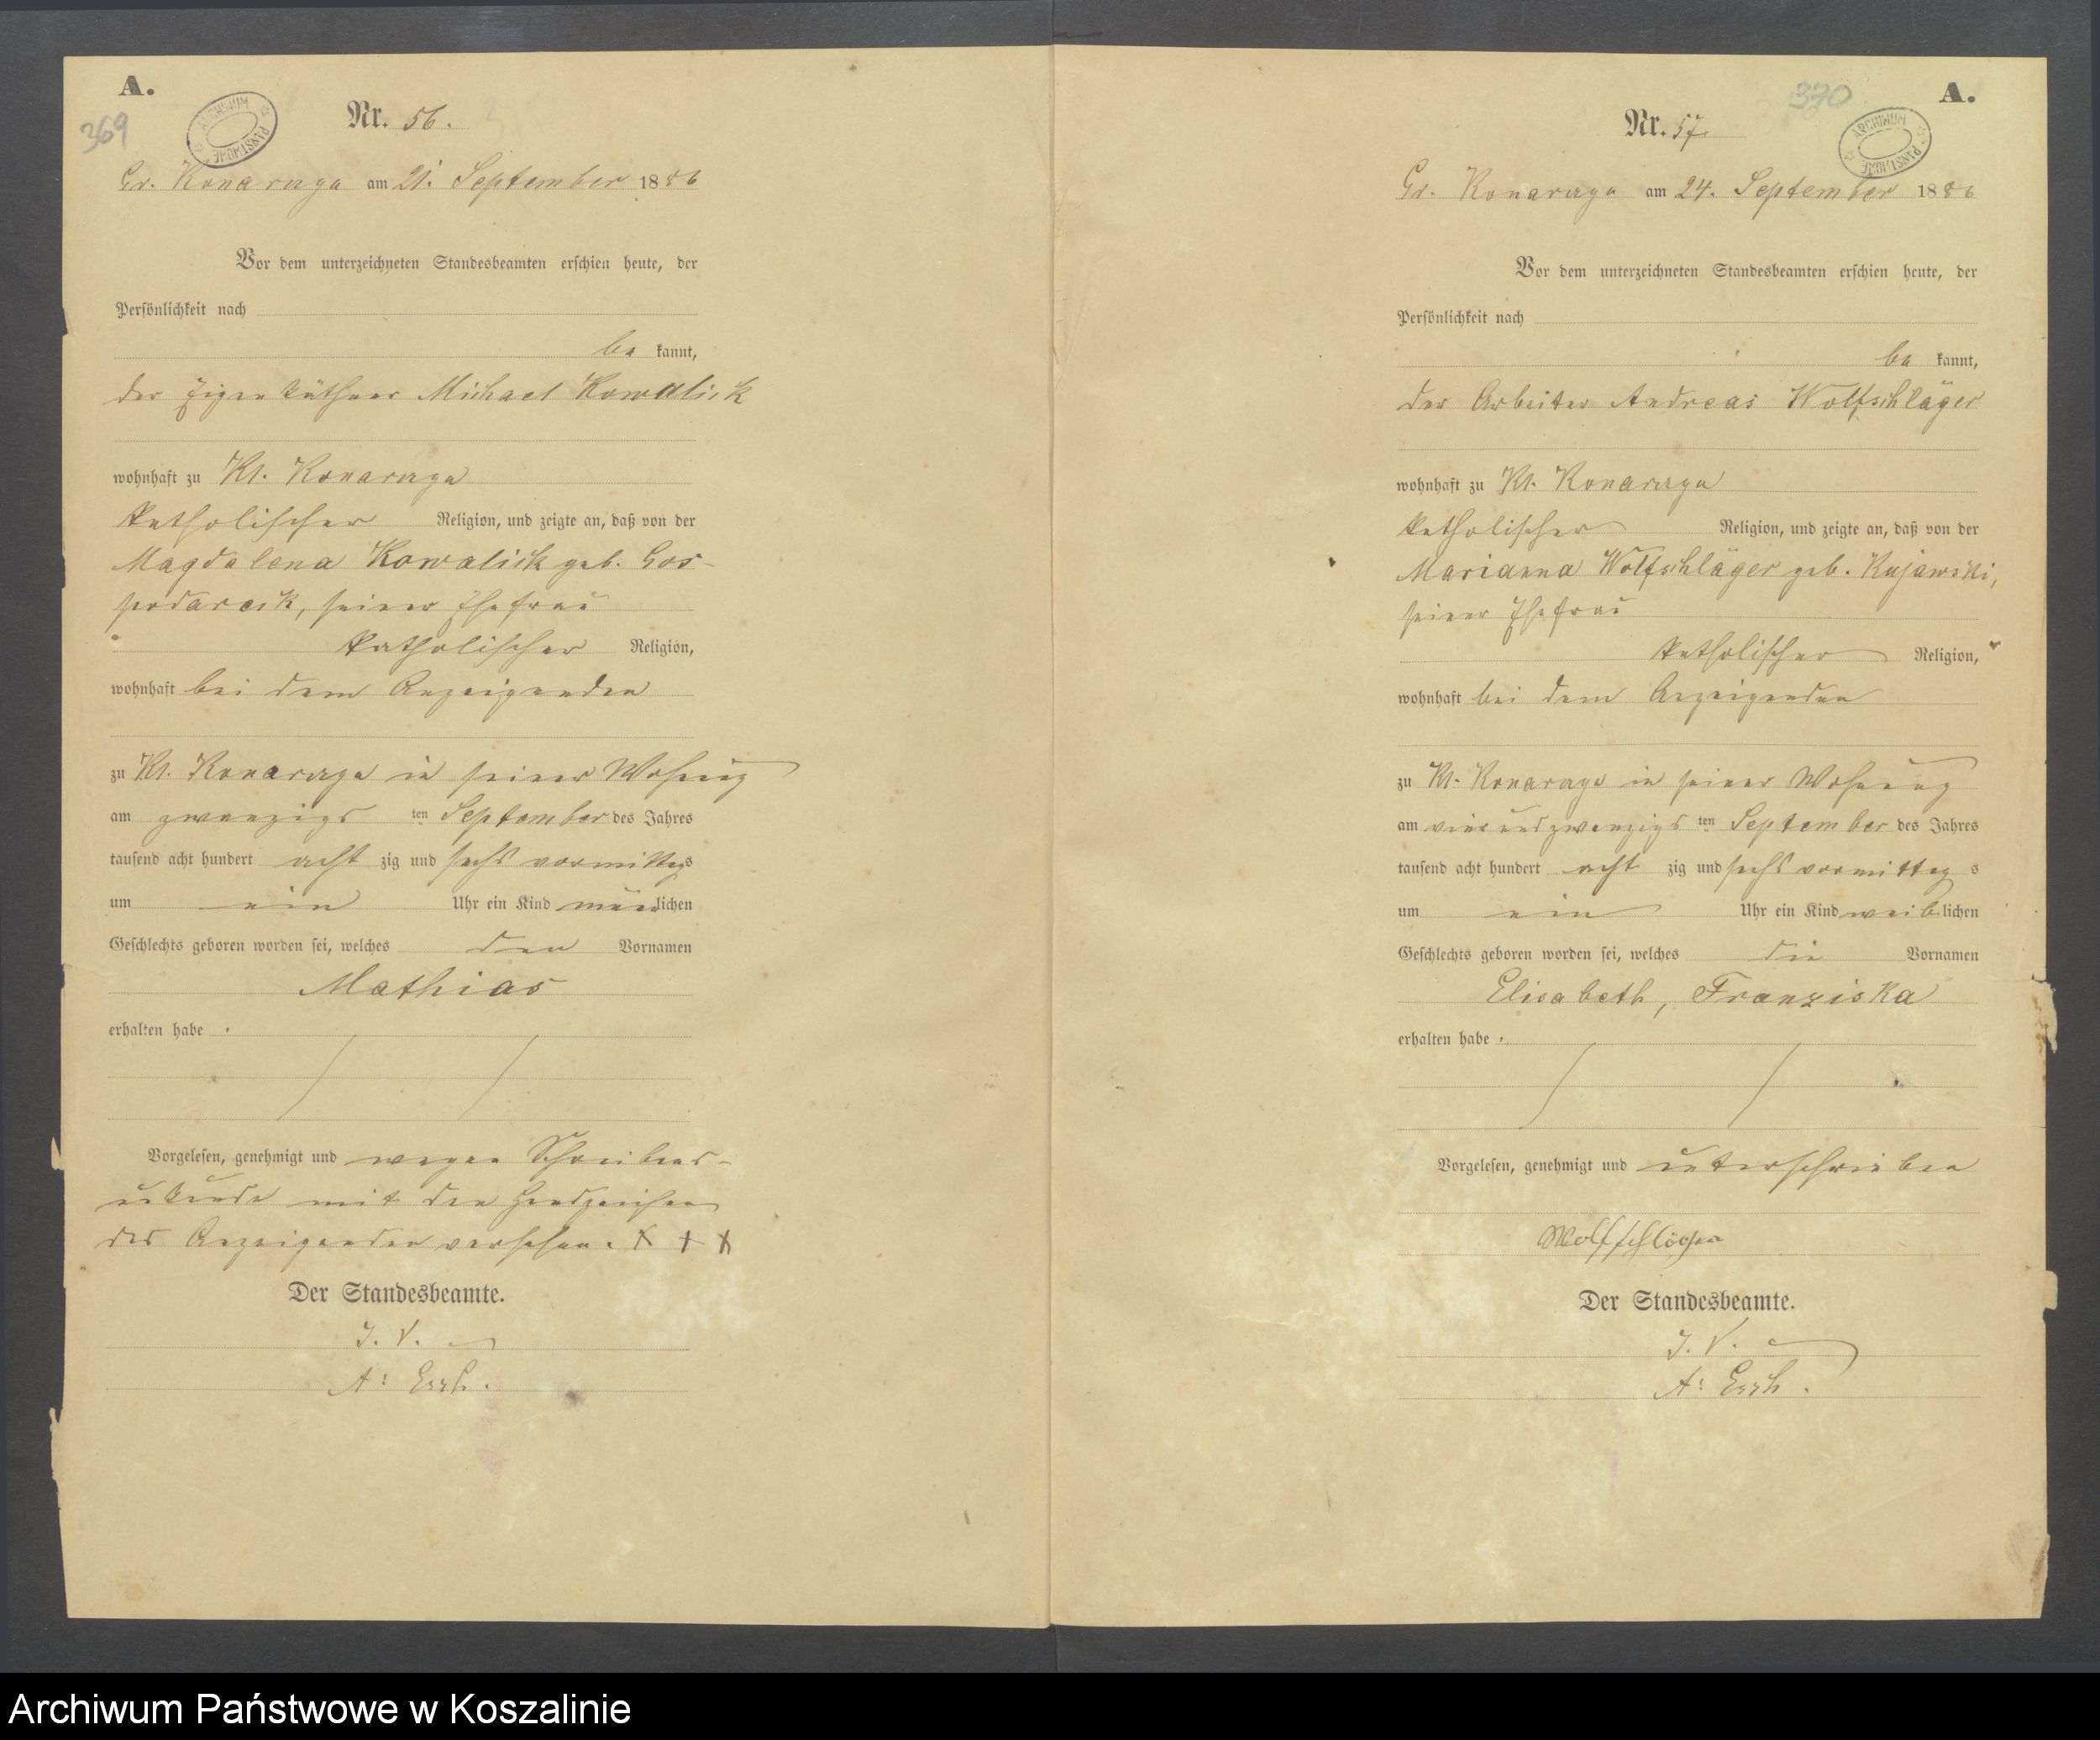 A.
369
ARCHIWUM PAŃSTWOWE
Nr. 56.
Gr. Konarczyn am 21. September 1886
Vor dem unterzeichneten Standesbeamten erschien heute, der
Persönlichkeit nach
be kannt,
der Eigenkäthner Michael Kowalick
wohnhaft zu Kl. Konarczyn
katholischer Religion, und zeigte an, daß von der
Magdalena Kowalick geb. Gos-
podarek, seiner Ehefrau
katholischer Religion,
wohnhaft bei dem Anzeigenden
zu Kl. Konarczyn in seiner Wohnung
am zwanzigs ten September des Jahres
tausend acht hundert acht zig und sechs vormittags
um ein Uhr ein Kind männlichen
Geschlechts geboren worden sei, welches den Vornamen
Mathias
erhalten habe.
Vorgelesen, genehmigt und wegen Schreibens-
unkunde mit den Handzeichen
des Anzeigenden versehen. X + X
Der Standesbeamte.
J. V.
A.
370
ARCHIWUM PAŃSTWOWE
Nr. 57
Gr. Konarczyn am 24. September 1886
Vor dem unterzeichneten Standesbeamten erschien heute, der
Persönlichkeit nach
be kannt,
der Arbeiter Andreas Wolfschläger
wohnhaft zu Kl. Konarczyn
katholischer Religion, und zeigte an, daß von der
Marianna Wolfschläger geb. Kujawski,
seiner Ehefrau
katholischer Religion,
wohnhaft bei dem Anzeigenden
zu Kl. Konarczyn in seiner Wohnung
am vierundzwanzigs ten September des Jahres
tausend acht hundert acht zig und sechs vormittag s
um ein Uhr ein Kind weiblichen
Geschlechts geboren worden sei, welches die Vornamen
Elisabeth, Franziska
erhalten habe.
Vorgelesen, genehmigt und unterschrieben
Wolfschläger
Der Standesbeamte.
J. V.
Archiwum Państwowe w Koszalinie